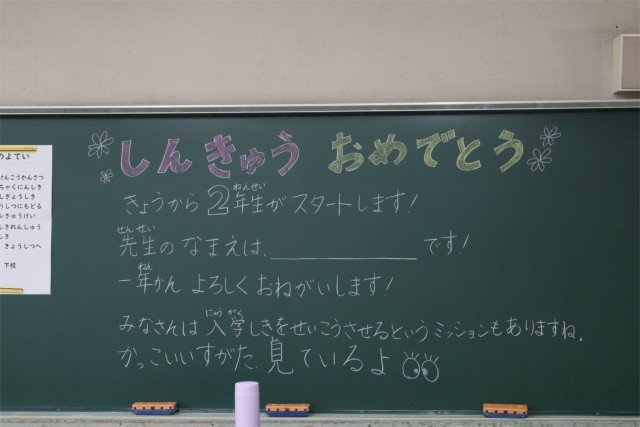 しんきゅう おめでとう
ねんせい
きょうから2年生がスタートします!
せんせい
先生の なまえは、__________です!
ねん
一年かん よろしく おねがいします!
にゅうがく
みなさんは 入学しきをせいこうさせるというミッションもありますね。
かっこいいすがた、見ているよ
のよてい
けんこうかんさつ
ちゃくにんしき
しぎょうしき
うしつにもどる
しきゅうけい
しきれんしゅう
しき
きょうしつへ
下校